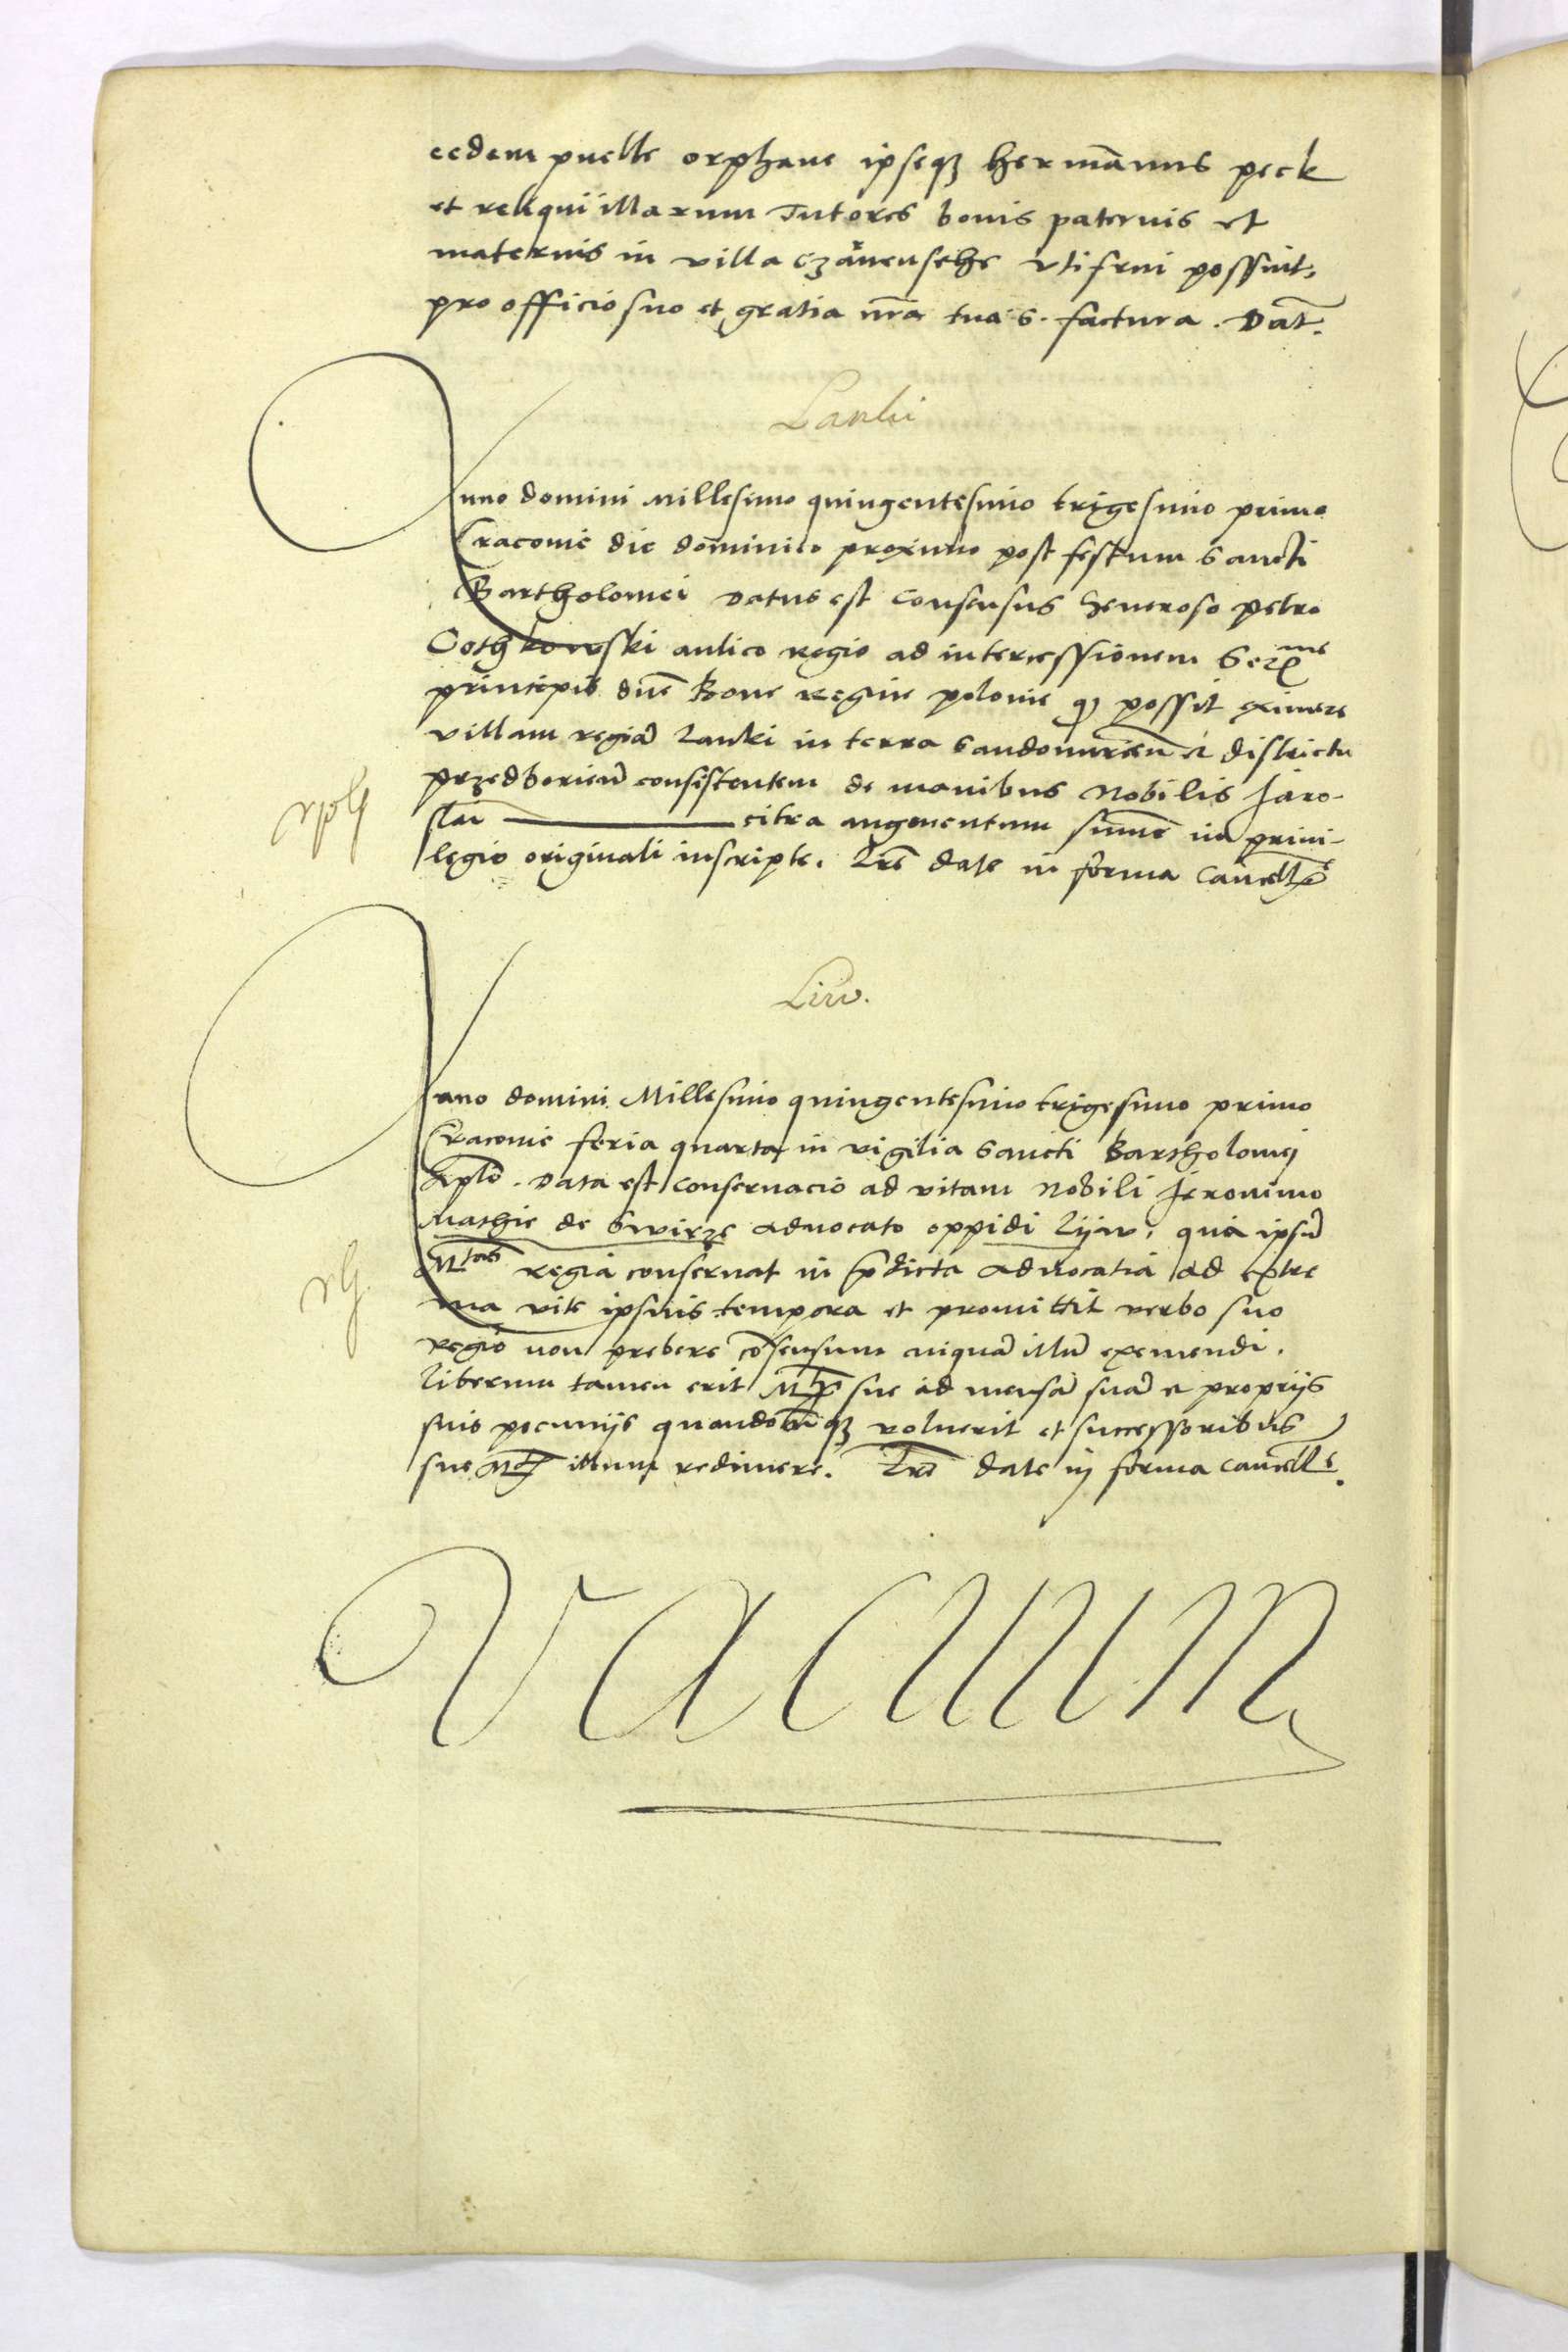 eedem puelle orphane ipseqz hermānus peck
et reliqui illarum Tutores bonis paternis et
maternis in villa czānensehe vtifrui possint,
pro officio suo et gratia nr̄a tua s. factura. Dat̄.
Lanki
Anno domini Millesimo quingentesimo trigesimo primo
Cracovie die dominico proximo post festum Sancti
Bartholomei Datus est consensus Generoso petro
Oothkowski aulico regio ad intercessionem Serme
principis dnē Bone regine polonie qd possit eximere
villam regiā Lanki in terra Sandomirien̄ et districtu
przedborien̄ consistentem de manibus Nobilis Jaro-
slai citra augmentum sum̄e in privi-
legio originali inscripte. Lr̄e date in forma Cancell
Liw.
Anno domini Millesimo quingentesimo trigesimo primo
Cracovie feria quarta in vigilia Sancti Bartholomej
Apl̄i. Data est conservacio ad vitam Nobili Jeronimo
Mathie de Swirze advocato oppidi Lijw, qua ipsū
Mtas regia conservat in p̄dicta advocatia ad extre
ma vite ipsius tempora et promittit verbo suo
regio non prebere cōsensum cuiquā illū exemendi.
Liberum tamen erit Mti sue ad mensā suā e propriis
suis pecuniis quandocunqz voluerit et successoribus
sue Mtis illum redimere. Lr̄e date in forma cancell
VACUUM